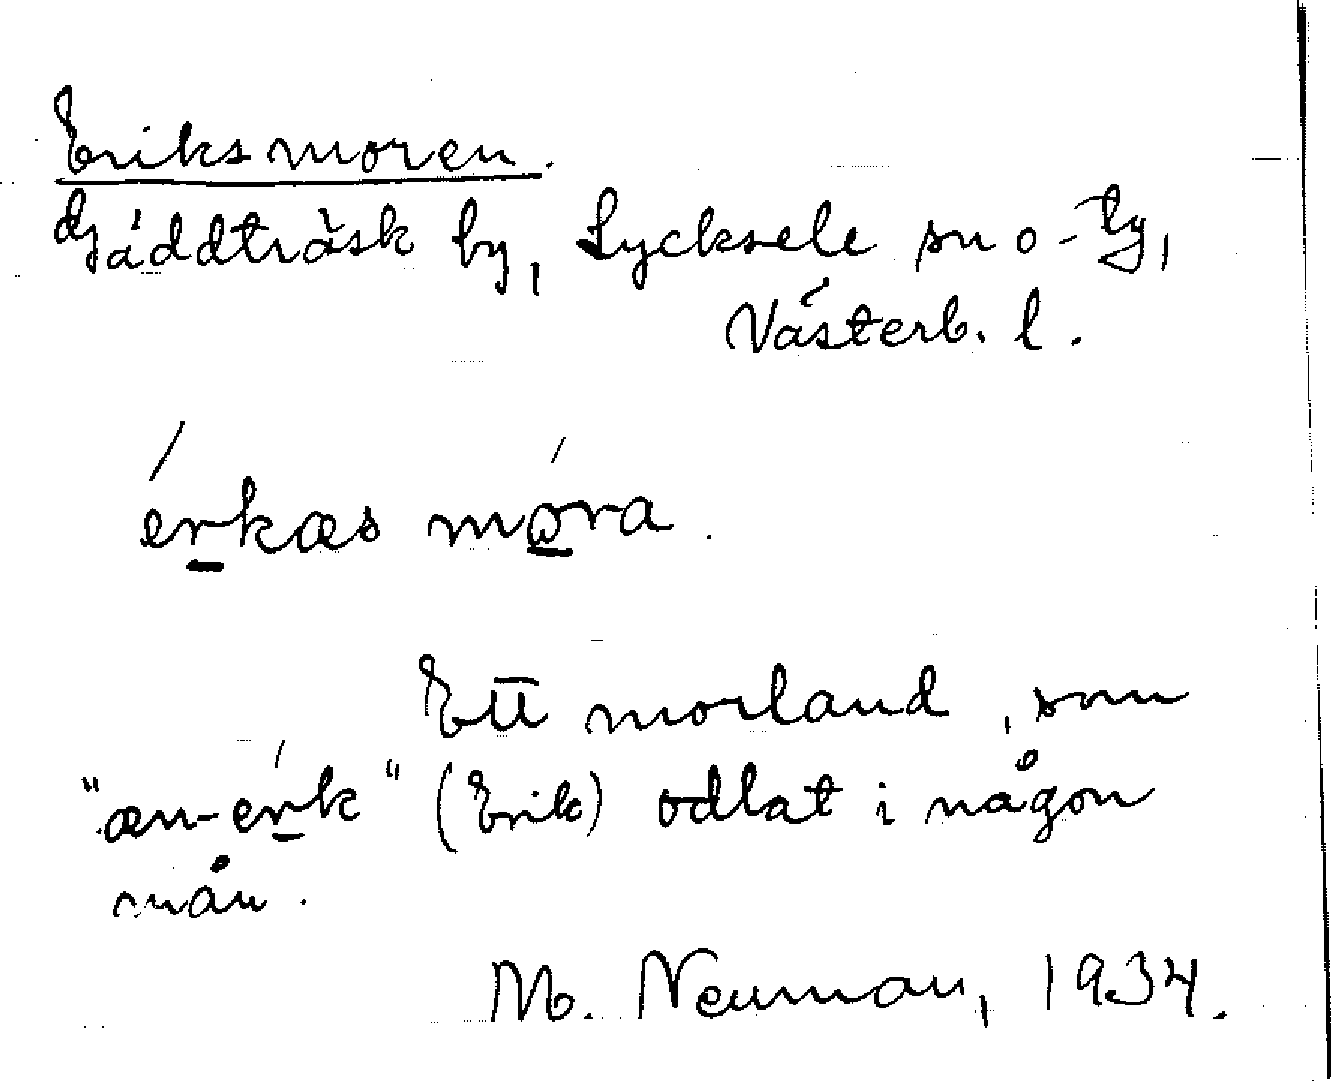 Eriksmoren.
Gäddträsk by, Lycksele sn o-tg,
Västerb. l.
érkæs móra.
Ett morland, som
"æn-erk" (Erik) odlat i någon
mån.
M. Neuman, 1934.